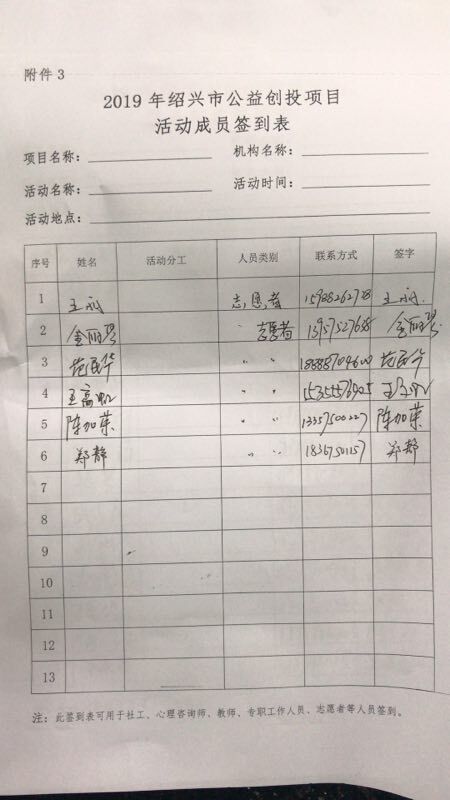 附件3
2019年绍兴市公益创投项目
活动成员签到表
项目名称： 机构名称：
活动名称： 活动时间：
活动地点：
序号 姓名 活动分工 人员类别 联系方式 签字
1 志愿者
2 金丽琴 〃 志愿者 金丽琴
3 范民华 〃 〃 范民华
4 〃 〃
5 陈加荣 〃 〃 13357500227 陈加荣
6 郑静 〃 〃 18367501157 郑静
7
8
9
10
11
12
13
注：此签到表可用于社工、心理咨询师、教师、专职工作人员、志愿者等人员签到。